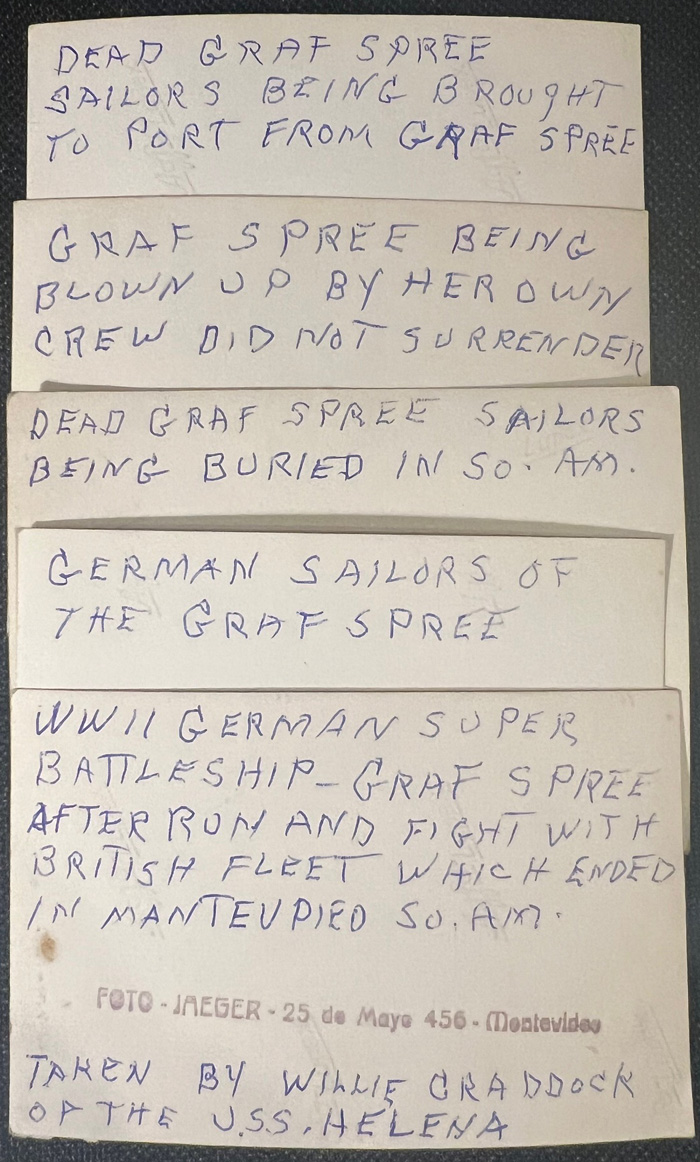 DEAD GRAF SPREE
SAILORS BEING BROUGHT
TO PORT FROM GRAF SPREE
GRAF SPREE BEING
BLOWN UP BY HER OWN
CREW DID NOT SURRENDER
DEAD GRAF SPREE SAILORS
BEING BURIED IN SO. AM.
GERMAN SAILORS OF
THE GRAF SPREE
WWII GERMAN SUPER
BATTLESHIP - GRAF SPREE
AFTER RUN AND FIGHT WITH
BRITISH FLEET WHICH ENDED
IN MANTEUPIED SO. AM.
FOTO - JAEGER - 25 de Mayo 456 - Montevideo
TAKEN BY WILLIE CRADDOCK
OF THE U.S.S. HELENA